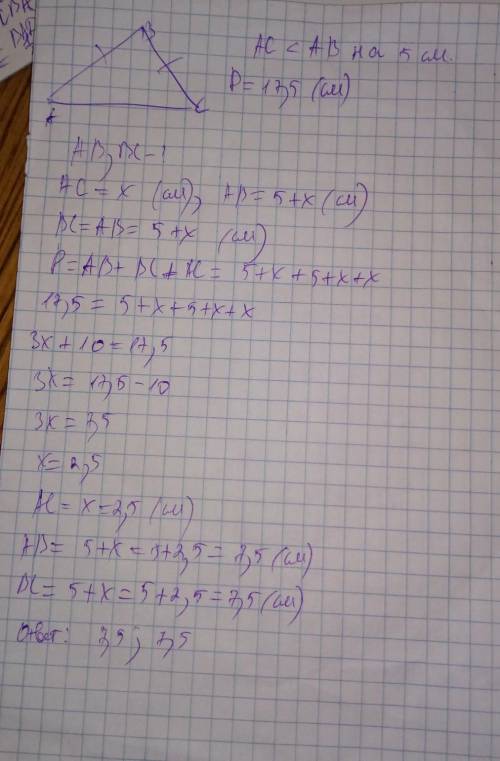 B
A
C
AC < AB на 5 см.
P = 17,5 (см)
AB, BC - ?
AC = x (см), AB = 5+x (см)
BC = AB = 5+x (см)
P = AB + BC + AC = 5+x+5+x+x
17,5 = 5+x+5+x+x
3x+10 = 17,5
3x = 17,5 - 10
3x = 7,5
x = 2,5
AC = x = 2,5 (см)
AB = 5+x = 5+2,5 = 7,5 (см)
BC = 5+x = 5+2,5 = 7,5 (см)
Ответ: 7,5; 7,5